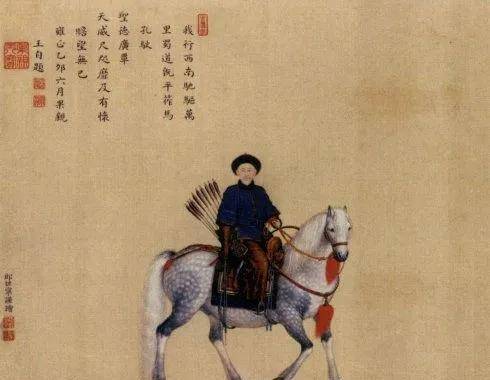 我行西南馳驅萬
里蜀道既平莋馬
孔駃
聖德廣覃
天威尺咫靡及有懷
瞻望無已
雍正乙卯六月果親
王自題
郎世寧謹繪